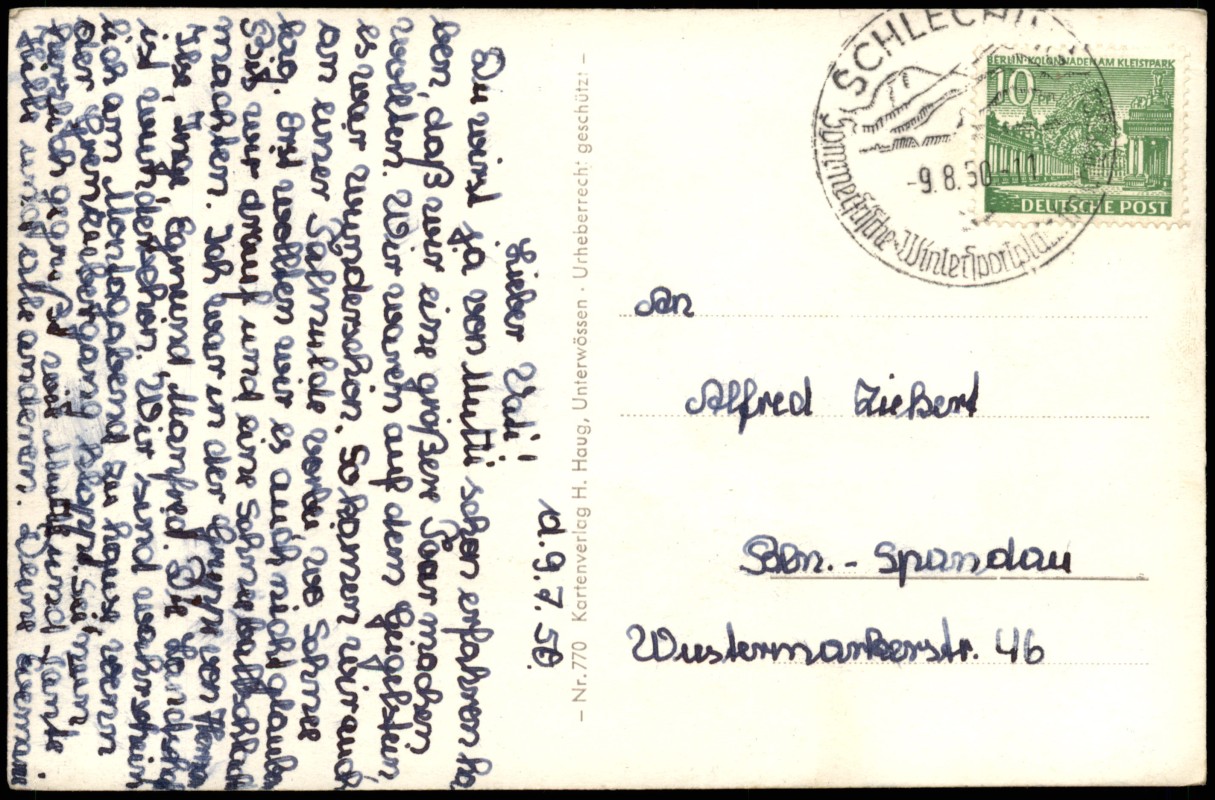 d. 9.7.50.
Lieber Vati!
Du wirst ja von Mutti schon erfahren ha
ben, daß wir eine größere Tour machen
wollten. Wir waren auf dem Geigelstein,
es war wunderschön. So kamen wir auch
an einer Talmulde vorbei, wo Schnee
lag. Erst wollten wir es auch nicht glauben
bis wir drauf und eine Schneeballschlacht
machten. Ich war in der Gruppe von Herrn
Ilse, Inge, Manfred. Die
ist auch dabei. Wir sind wahrschein
lich am Montagabend zu hause, wenn
der Grenzübergang klappt. Sei nun
herzlich gegrüßt von Mutti und Tante
Hilde und alle anderen. Deine
– Nr. 770 Kartenverlag H. Haug, Unterwössen · Urheberrecht geschützt –
SCHLECHI
Sommerfrische · Wintersportplatz
-9.8.50-11
BERLIN-KOLONNADEN AM KLEISTPARK
10 Pf
DEUTSCHE POST
An
Alfred Ziebert
Bln. - Spandau
Wustermarkerstr. 46